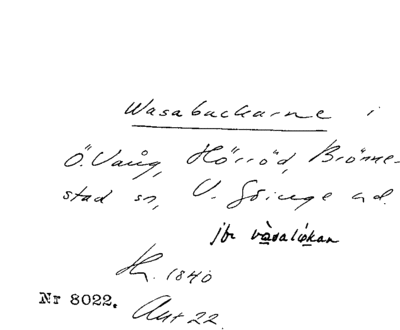 Wasabackarne i
Ö. Vång, Hörröd, Brönne-
stad sn, V. Göinge hd.
jfr vàsalískan
H. 1840
Nr 8022. Ant 22.